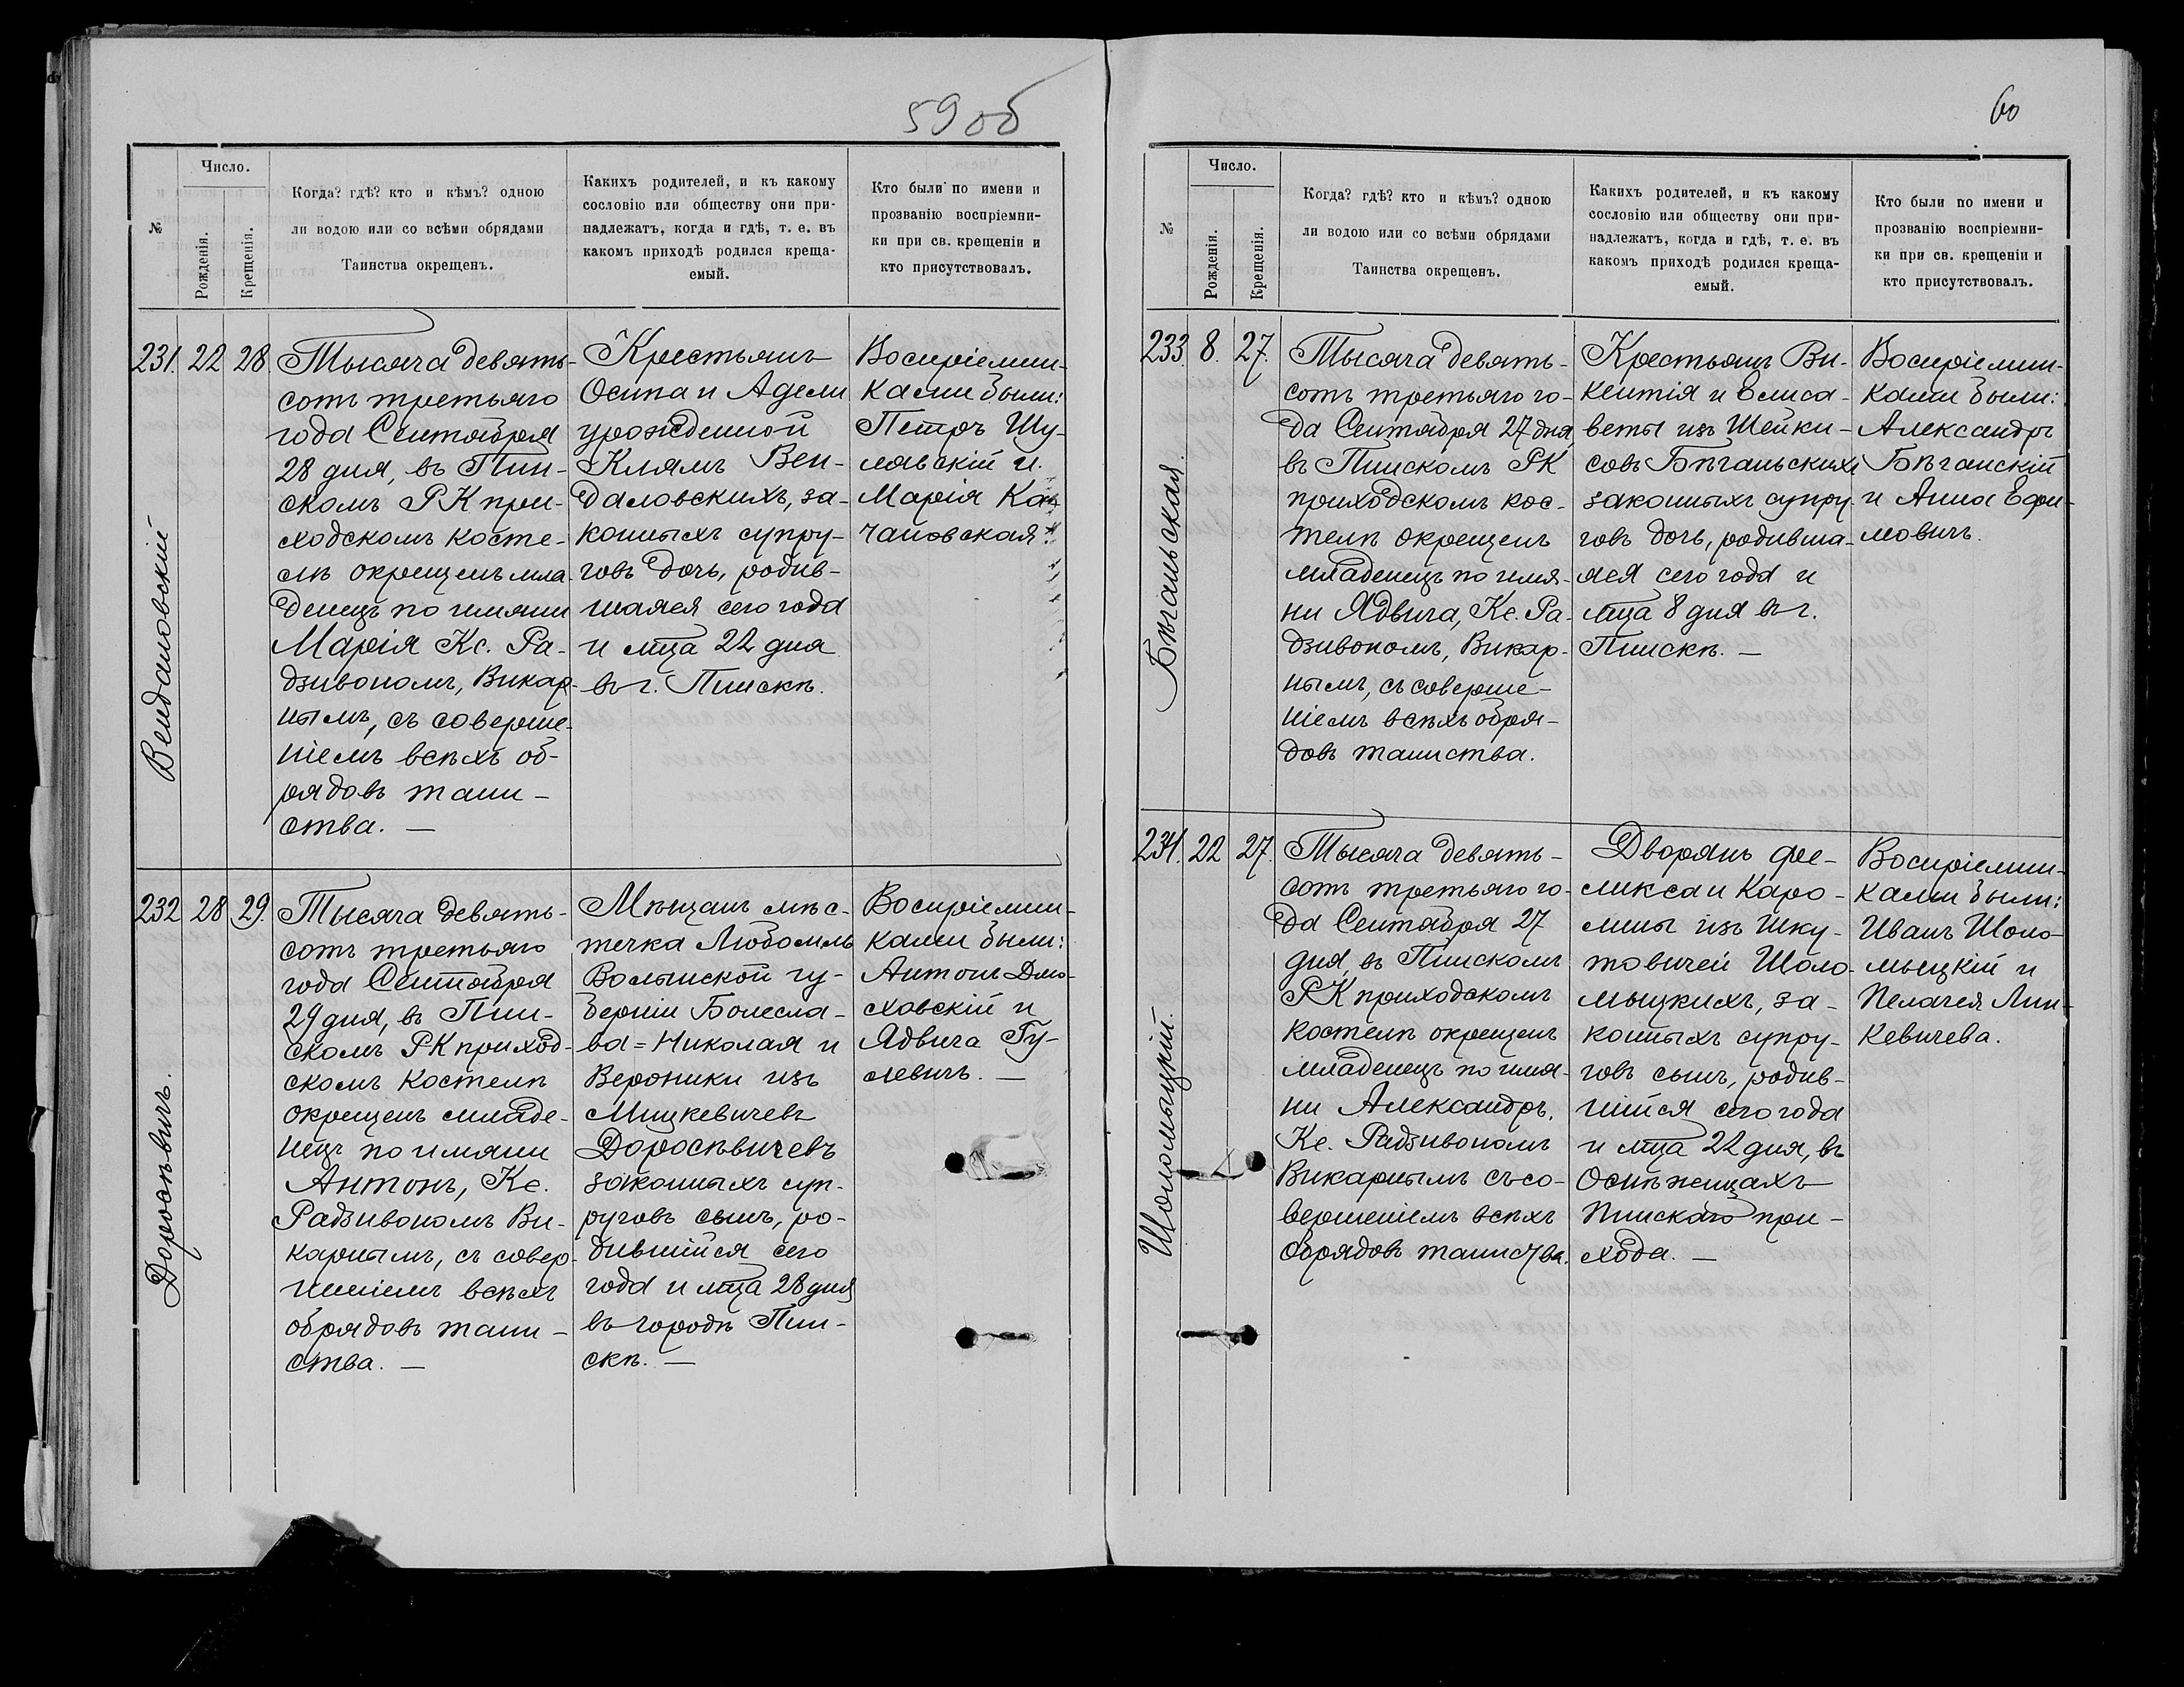 59об
№
Число.
Рожденія.
Крещенія.
Когда? гдѣ? кто и кѣмъ? одною
ли водою или со всѣми обрядами
Таинства окрещенъ.
Какихъ родителей, и къ какому
сословію или обществу они при-
надлежатъ, когда и гдѣ, т. е. въ
какомъ приходѣ родился креща-
емый.
Кто были по имени и
прозванію воспріемни-
ки при св. крещеніи и
кто присутствовалъ.
231. 22 28.
Вендаловскій
Тысяча девять-
сотъ третьяго
года Сентября
28 дня, въ Пин-
скомъ РК при-
ходскомъ косте-
лѣ окрещенъ мла-
денецъ по имяни
Марія Кс. Ра-
дзивономъ, Викар-
нымъ, съ соверше-
ніемъ всѣхъ об-
рядовъ таин-
ства. —
Крестьянъ
Осипа и Адели
урожденной
Клямъ Вен-
даловскихъ, за-
конныхъ супру-
говъ дочь, родив-
шаяся сего года
и мца 22 дня
въ г. Пинскѣ.
Воспріемни-
ками были:
Петръ Шу-
лавскій и
Марія
чановская
232 28 29.
Доросѣвичъ.
Тысяча девять-
сотъ третьяго
года Сентября
29 дня, въ Пин-
скомъ РК приход-
скомъ костелѣ
окрещенъ младе-
нецъ по имяни
Антонъ, Кс.
Радзивономъ Ви-
карнымъ, съ совер-
шеніемъ всѣхъ
обрядовъ таин-
ства. —
Мѣщанъ мѣс-
течка Любомль
Волынской гу-
берніи Болесла-
ва=Николая и
Вероники изъ
Мицкевичевъ
Доросѣвичевъ
законныхъ суп-
руговъ сынъ, ро-
дившійся сего
года и мца 28 дня
въ городѣ Пин-
скѣ. —
Воспріемни-
ками были:
Антонъ Дмо-
ховскій и
Ядвига Гу-
левичъ. —
60
№
Число.
Рожденія.
Крещенія.
Когда? гдѣ? кто и кѣмъ? одною
ли водою или со всѣми обрядами
Таинства окрещенъ.
Какихъ родителей, и къ какому
сословію или обществу они при-
надлежатъ, когда и гдѣ, т. е. въ
какомъ приходѣ родился креща-
емый.
Кто были по имени и
прозванію воспріемни-
ки при св. крещеніи и
кто присутствовалъ.
233. 8. 27.
Бѣганьская.
Тысяча девять-
сотъ третьяго го-
да Сентября 27 дня
въ Пинскомъ РК
приходскомъ кос-
телѣ окрещенъ
младенецъ по имя-
ни Ядвига, Кс. Ра-
дзивономъ, Викар-
нымъ, съ соверше-
ніемъ всѣхъ обря-
довъ таинства.
Крестьянъ Ви-
кентія и Елиса-
веты изъ Шейки-
совъ Бѣганьскихъ
законныхъ супру-
говъ дочь, родивша-
яся сего года и
мца 8 дня въ г.
Пинскѣ. —
Воспріемни-
ками были:
Александръ
Бѣганскій
и Анна Ефи-
мовичъ.
234. 22 27.
Шоломыцкій.
Тысяча девять-
сотъ третьяго го-
да Сентября 27
дня, въ Пинскомъ
РК приходскомъ
костелѣ окрещенъ
младенецъ по имя-
ни Александръ,
Кс. Радзивономъ
Викарнымъ съ со-
вершеніемъ всѣхъ
обрядовъ таинства.
Дворянъ Фе-
ликса и Каро-
лины изъ Шку-
товичей Шоло-
мыцкихъ, за-
конныхъ супру-
говъ сынъ, родив-
шійся сего года
и мца 22 дня, въ
Оснѣжицахъ
Пинскаго при-
хода. —
Воспріемни-
ками были:
Иванъ Шоло-
мыцкій и
Пелагея Лин-
кевичева.